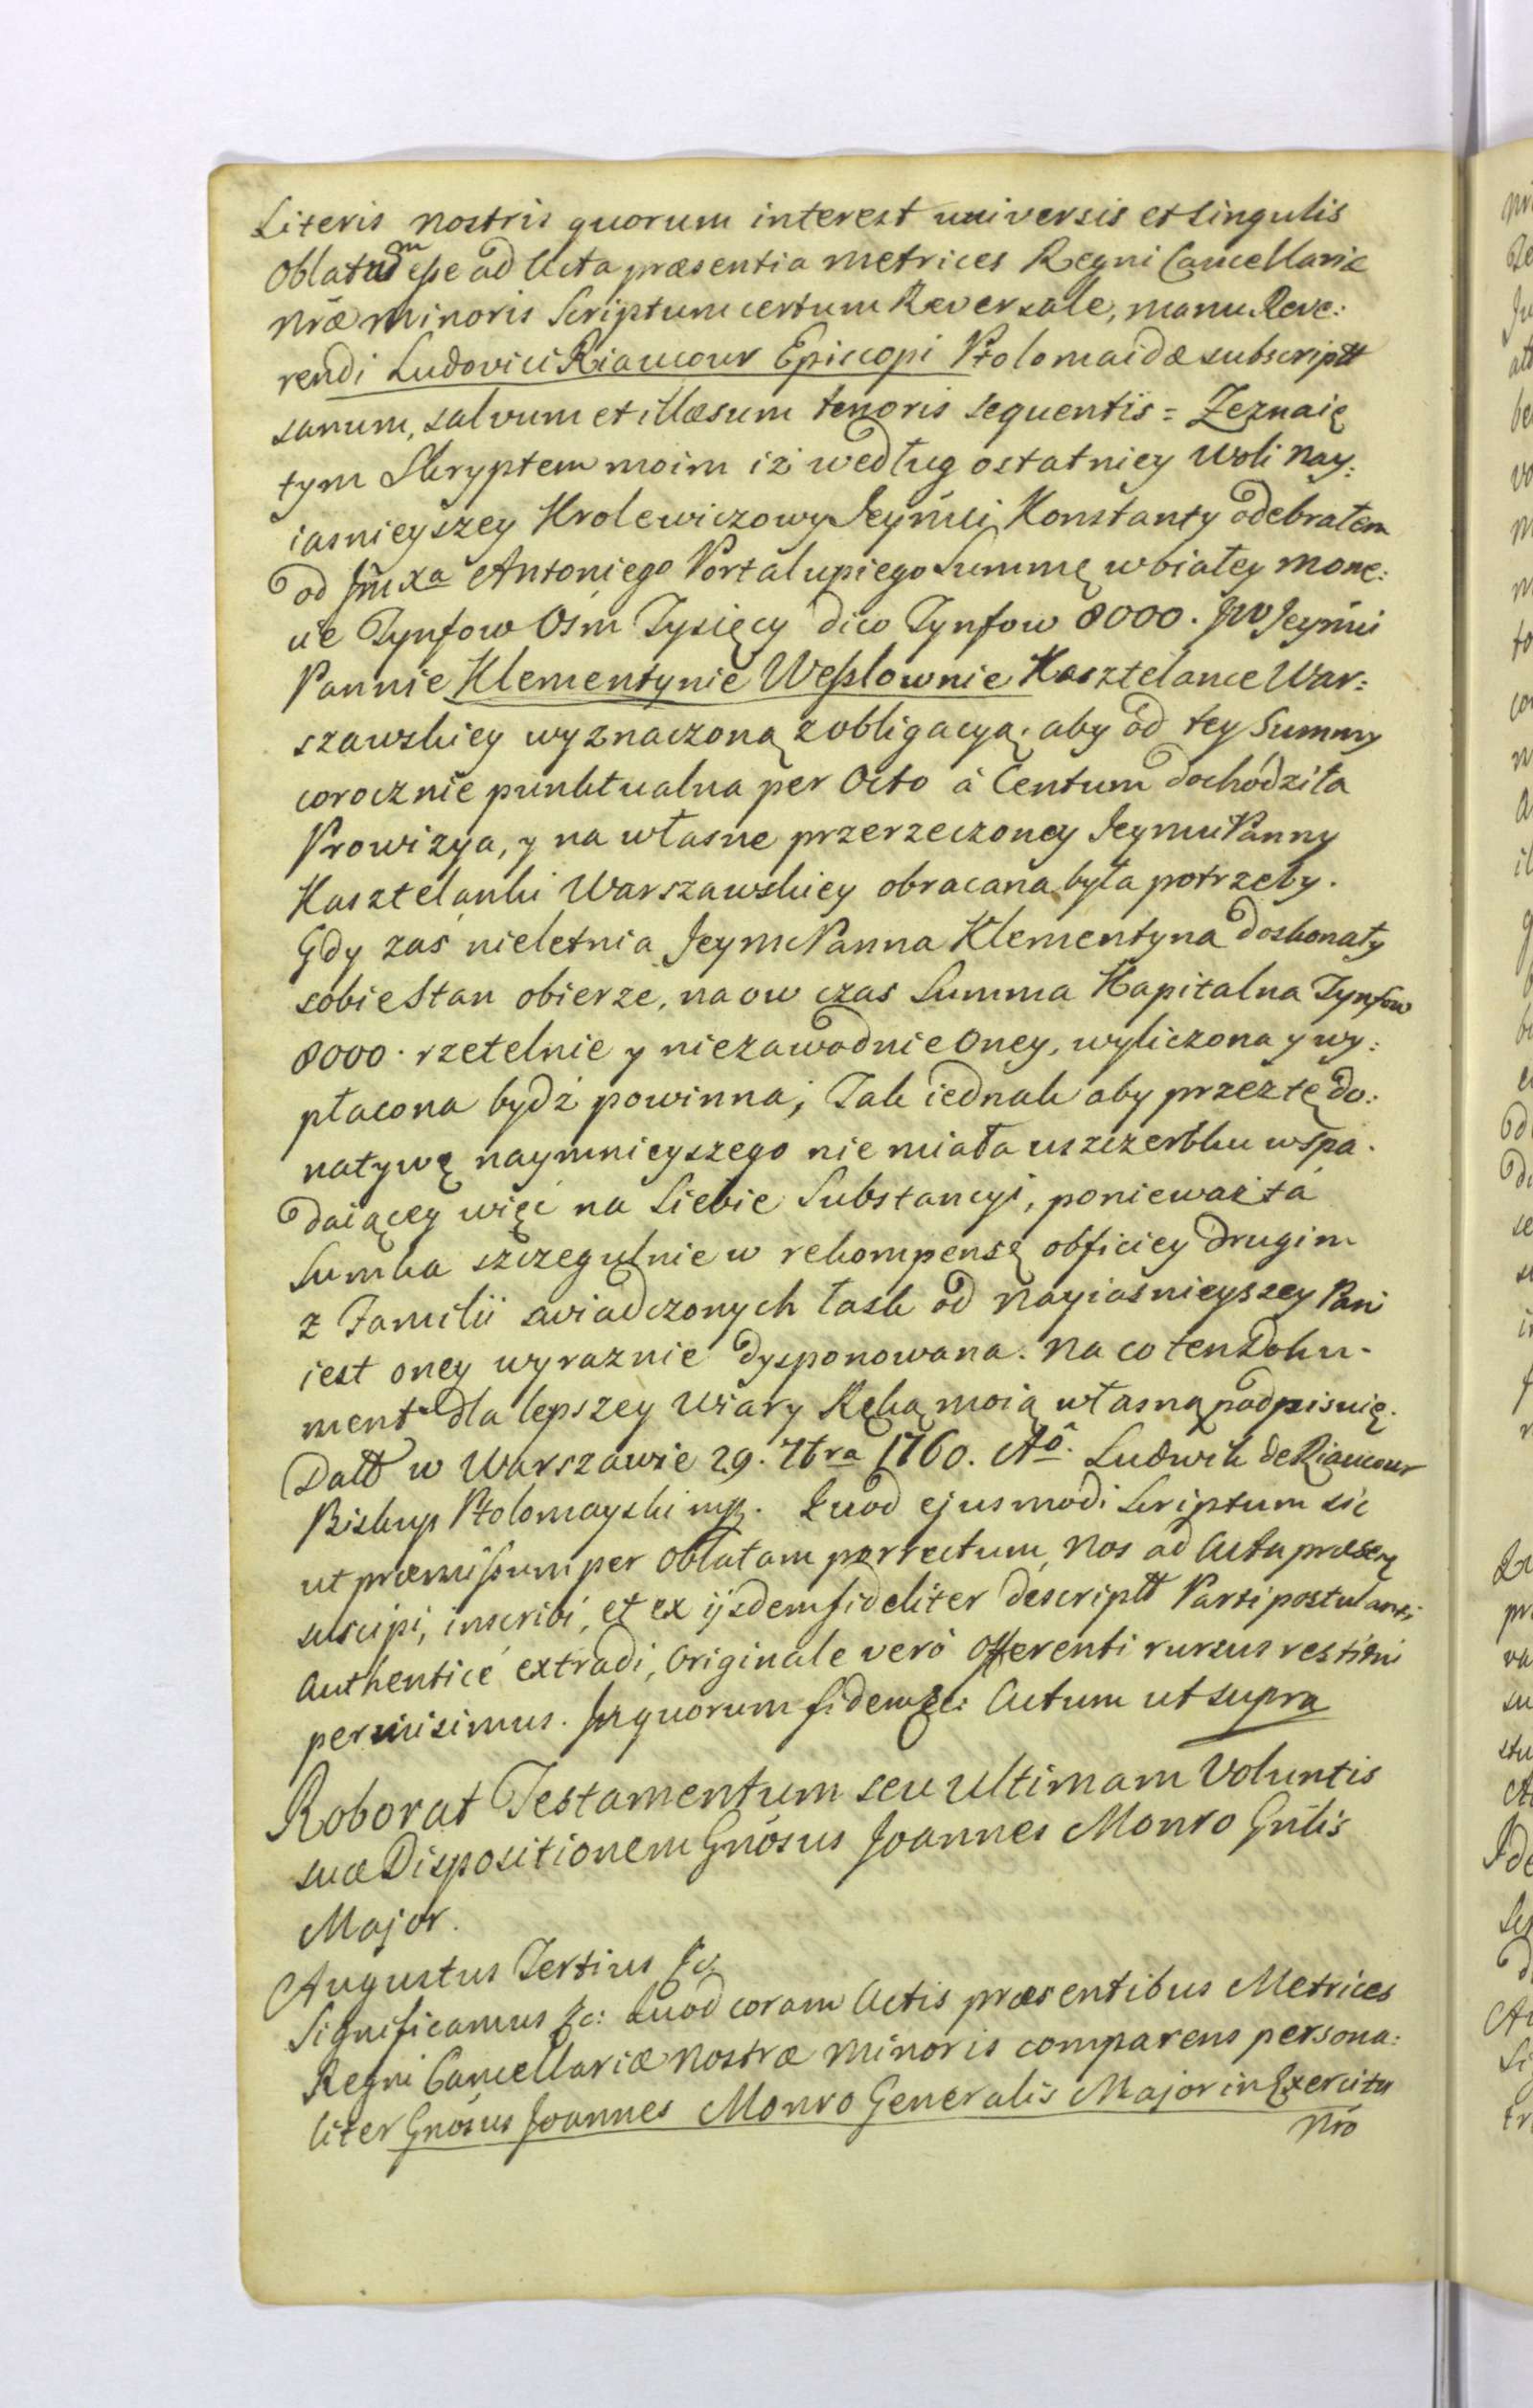 Literis nostris quorum interest universis et singulis
Oblatum esse ad Acta præsentia Metrices Regni Cancellariæ
Nræ minoris Scriptum certum Reversale, manu Reve:
rendi Ludovici Riaucour Episcopi Ptolomaidæ subscriptt
sanum, salvum et illæsum tenoris sequentis = Zeznaię
tym Skryptem moim iż według ostatniey woli Nay:
iasnieyszey Krolewiczowy Jeymći Konstanty odebrałem
od Jmć Xa Antoniego Portalupiego Summę w białey mone:
cie Tynfow Osm Tysięcy dico Tynfow 8000. JW Jeymći
Pannie Klementynie Wesslownie Kasztelance War:
szawskiey wyznaczoną z obligacyą, aby od tey Summy
corocznie punktualna per Octo à Centum dochodziła
Prowizya, y na własne przerzeczoney Jeymći Panny
Kasztelanki Warszawskiey obracana była potrzeby.
Gdy zaś nieletnia Jeymć Panna Klementyna doskonały
sobie stan obierze, na ow czas Summa Kapitalna Tynfow
8000. rzetelnie y niezawodnie oney, wyliczona y wy:
płacona bydź powinna; Tak iednak aby przez tę do:
natywę naymnieyszego nie miała uszczerbku w spa:
daiącey więc na Siebie Substancyi, ponieważ ta
Sumka szczegulnie w rekompensę obficiey drugim
z Familii swiadczonych łask od Nayiasnieyszey Pani
iest oney wyraznie dysponowana. Na co ten Doku-
ment dla lepszey wiary Ręką moią własną podpisuię.
Datt w Warszawie 29. 7bra 1760. Aô. Ludwik de Riaucour
Biskup Ptolomayski mp. Quod ejusmodi Scriptum sic
ut præmissum per oblatam porrectum, Nos ad Acta præsen
suscipi, inscribi, et ex ijsdem fideliter descriptt Parti postulanti
authenticè extradi, Originale verò Offerenti rursus restitui
permisimus. In quorum fidem &c: Actum ut supra
Roborat Testamentum seu ultimam Voluntis
suæ Dispositionem Gnosus Joannes Monro Gnlis
Major.
Augustus Tertius &c.
Significamus &c: Quod coram Actis præsentibus Metrices
Regni Cancellariæ Nostræ Minoris comparens persona:
liter Gnosus Joannes Monro Generalis Major in Exercitu
Nro